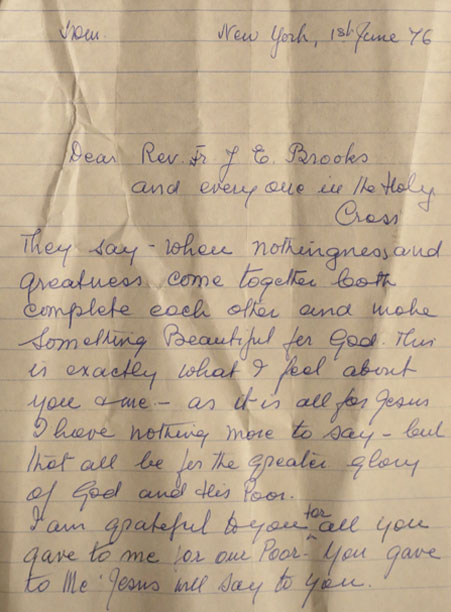 New York, 1st June 76
Dear Rev. Fr J E. Brooks
and every one in the Holy
Cross
They say - when nothingness and
greatness come together both
complete each other and make
Something Beautiful for God. This
is exactly what I feel about
you & me - as it is all for Jesus
I have nothing more to say - but
that all be for the greater glory
of God and His Poor.
I am grateful to you for all you
gave to me for our Poor - "You gave
to Me" Jesus will say to you.